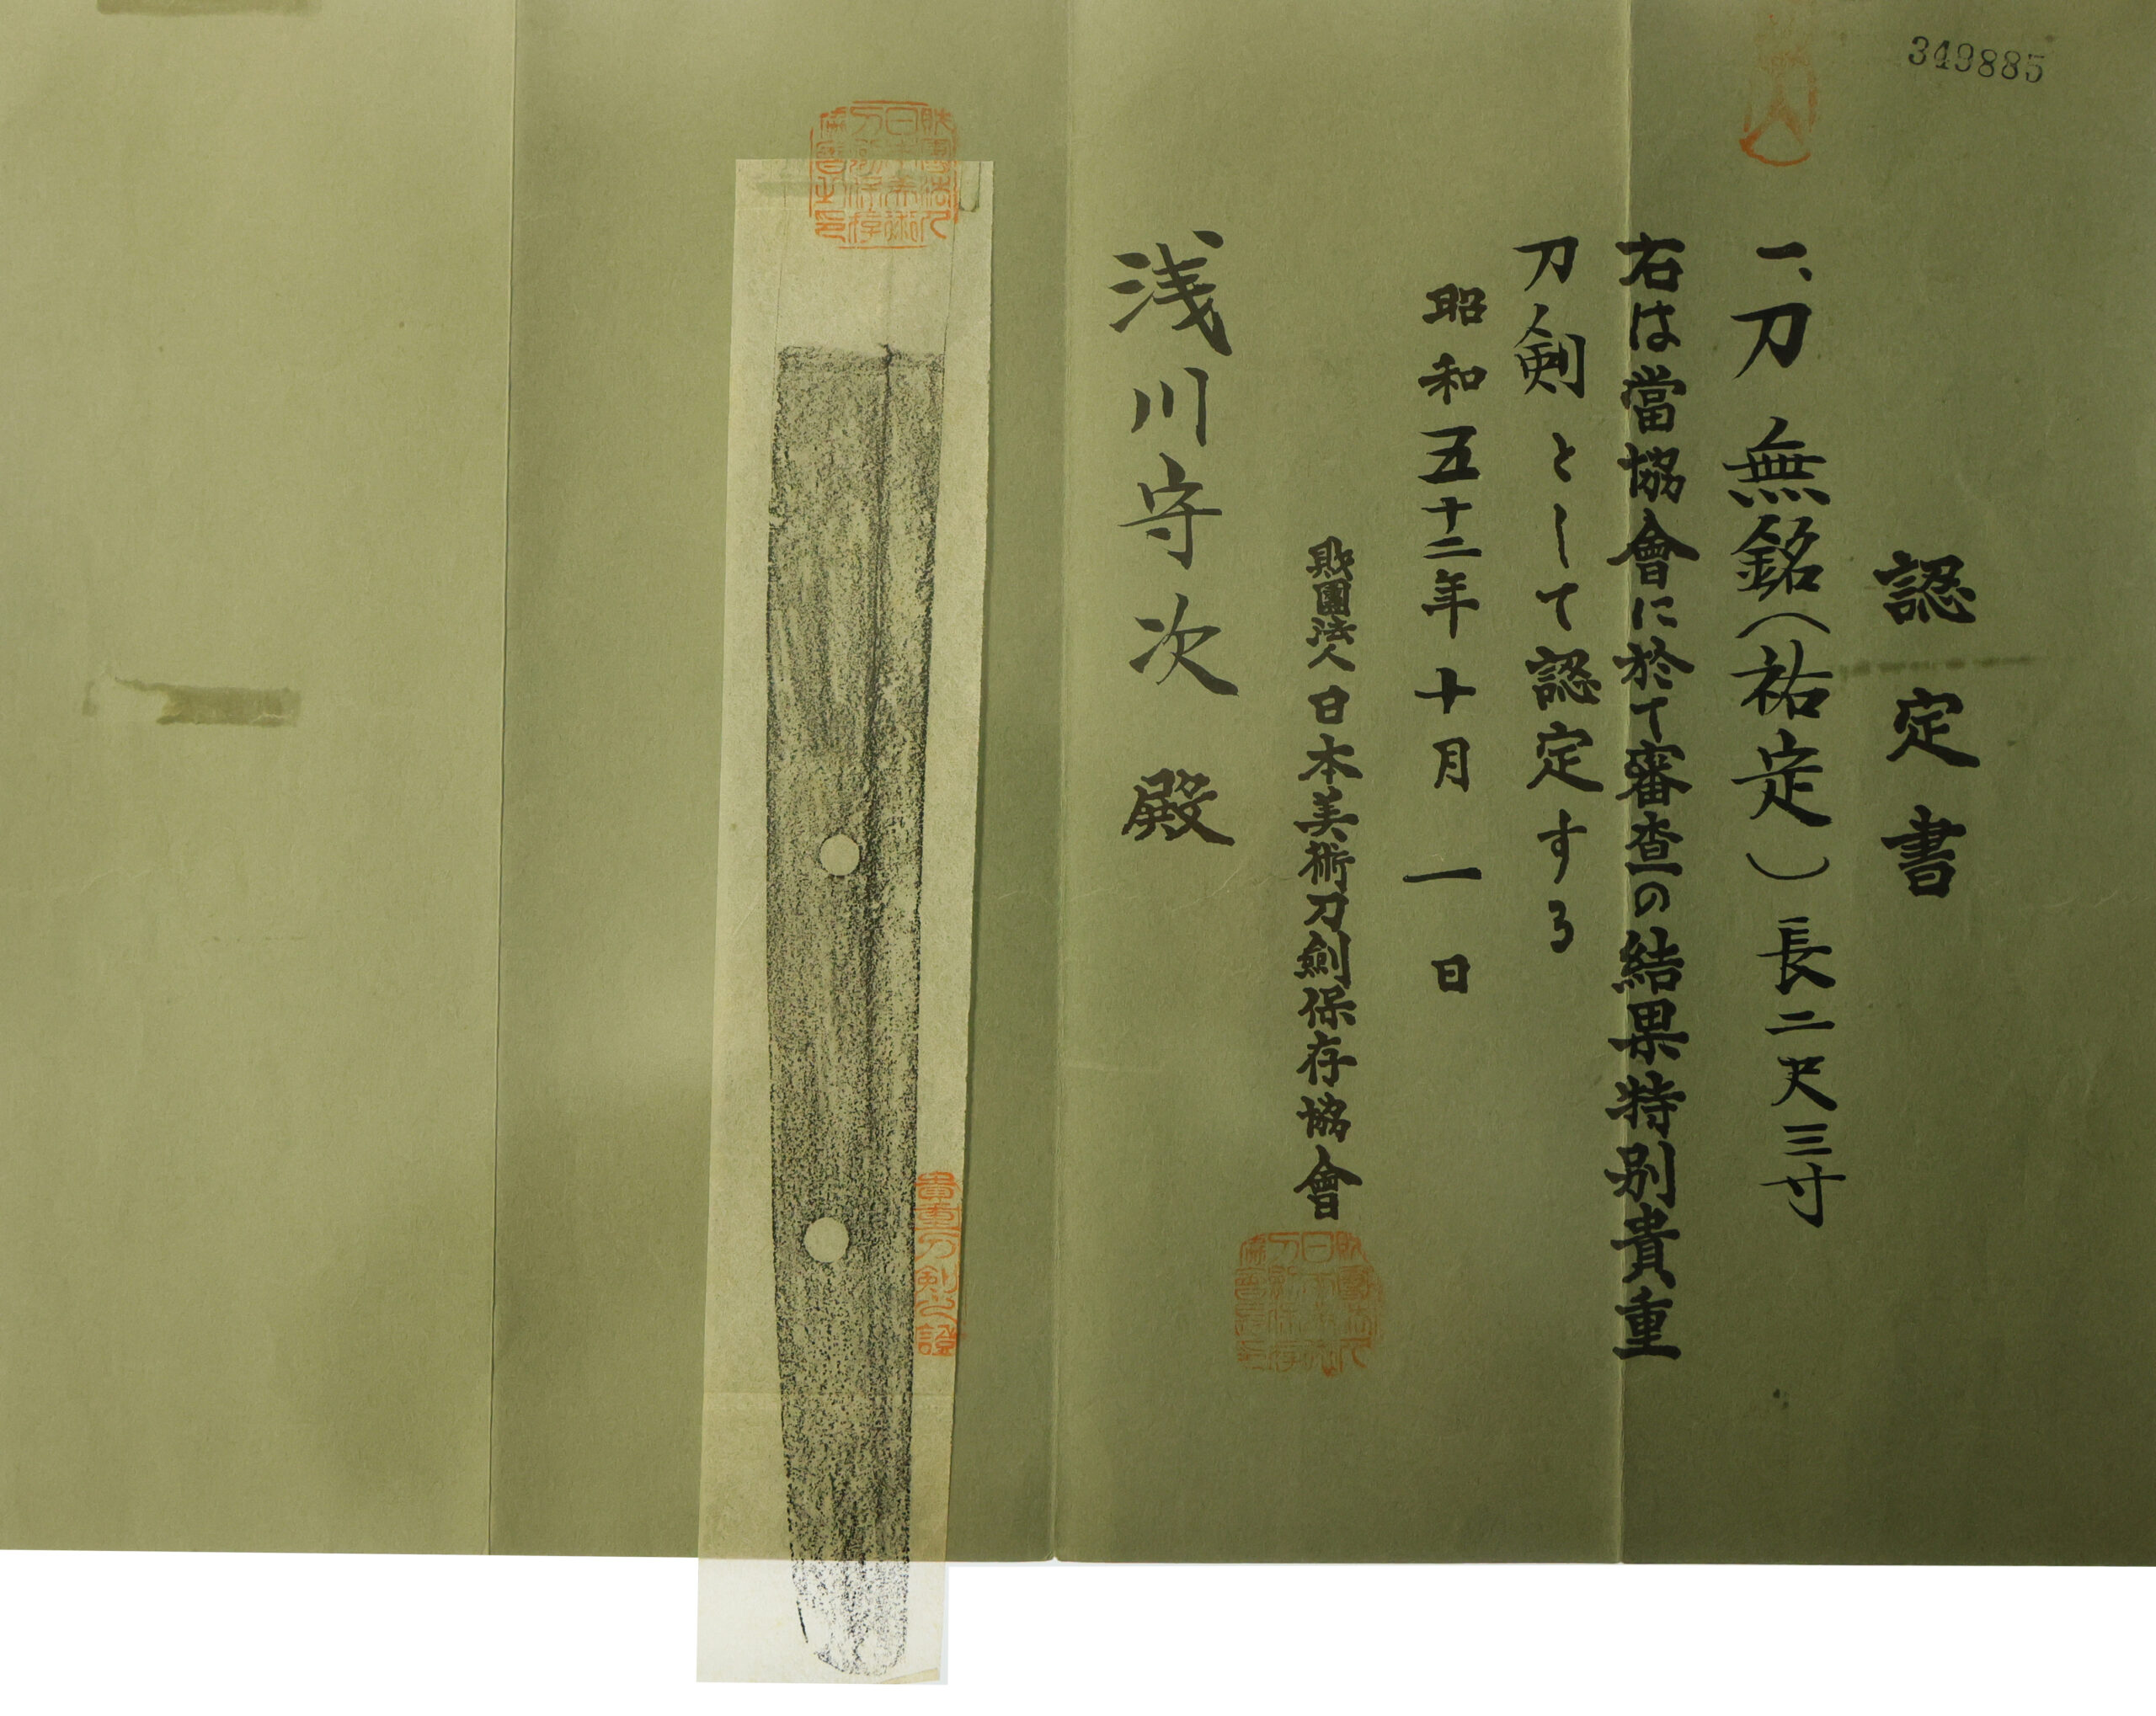 349885
認定書
一、刀 無銘(祐定)長二尺三寸
右は當協會に於て審査の結果特別貴重
刀剣として認定する
昭和五十二年十月一日
財團法人日本美術刀劍保存協會
浅川守次殿
貴重刀剣之證